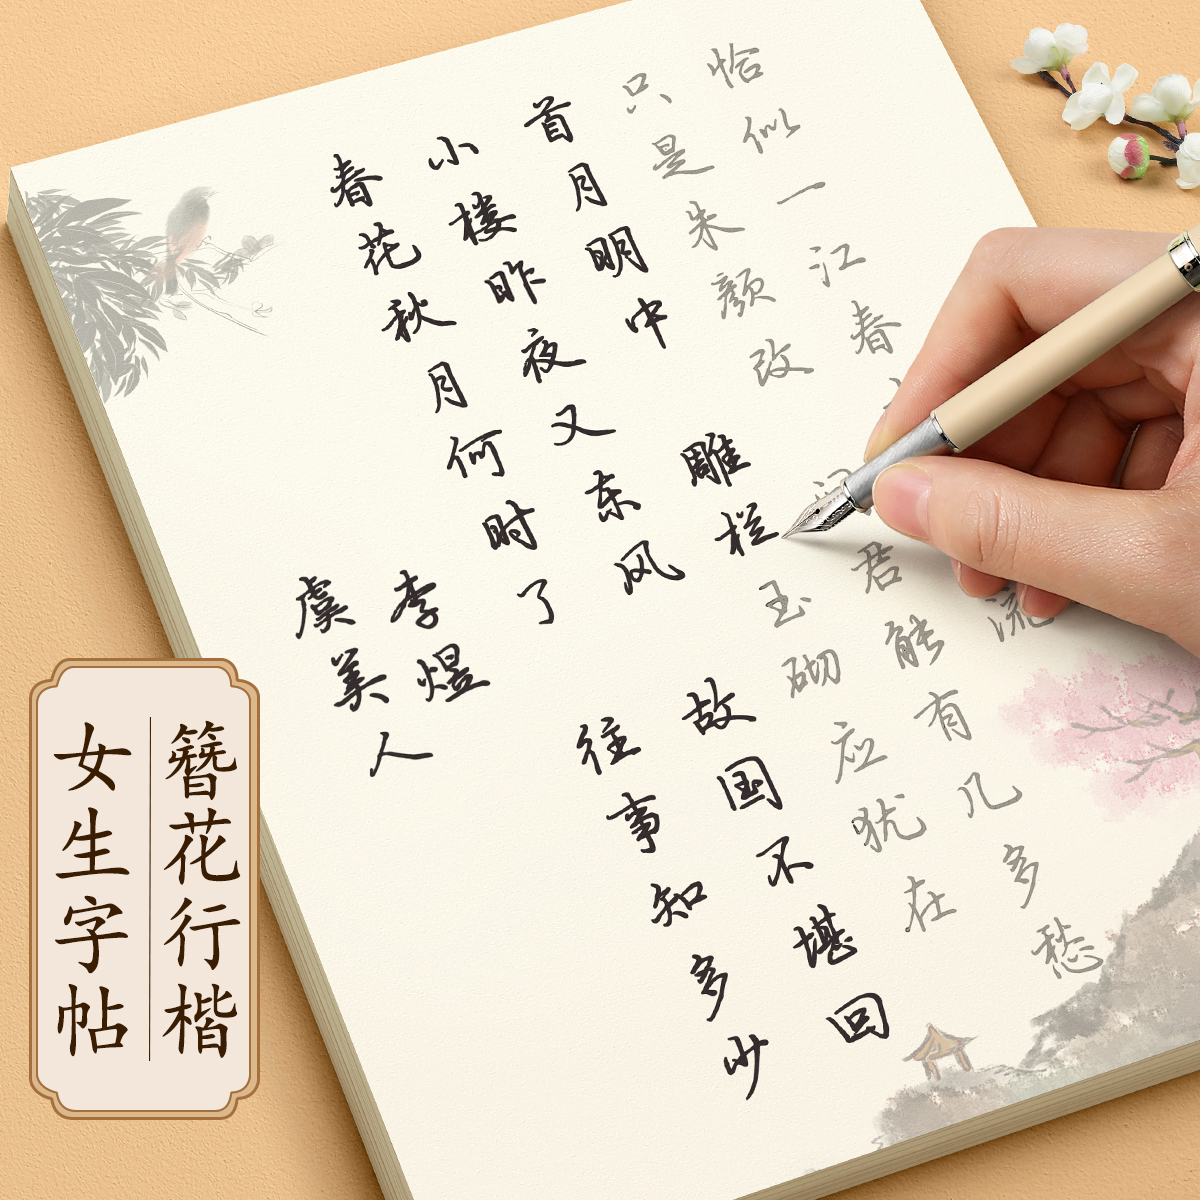 虞美人
李煜
春花秋月何时了
往事知多少
小楼昨夜又东风
故国不堪回
首月明中
雕栏玉砌应犹在
只是朱颜改
问君能有几多愁
恰似一江春
流
簪花行楷
女生字帖